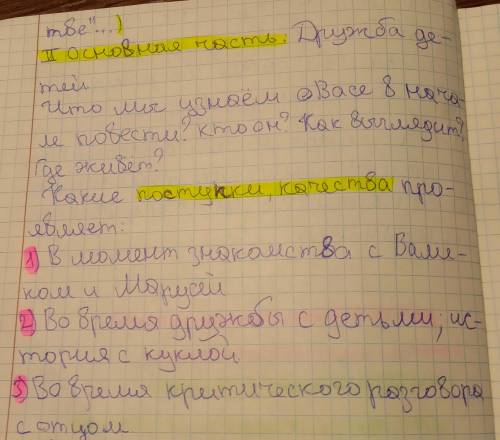 тве"...)
II основная часть. Дружба де-
тей
Что мы узнаём о Васе в нача-
ле повести? Кто он? Как выглядит?
Где живёт?
Какие поступки, качества про-
являет:
1) В момент знакомства с Вале-
ком и Марусей
2) Во время дружбы с детьми; ис-
тория с куклой
3) Во время критического разговора
с отцом